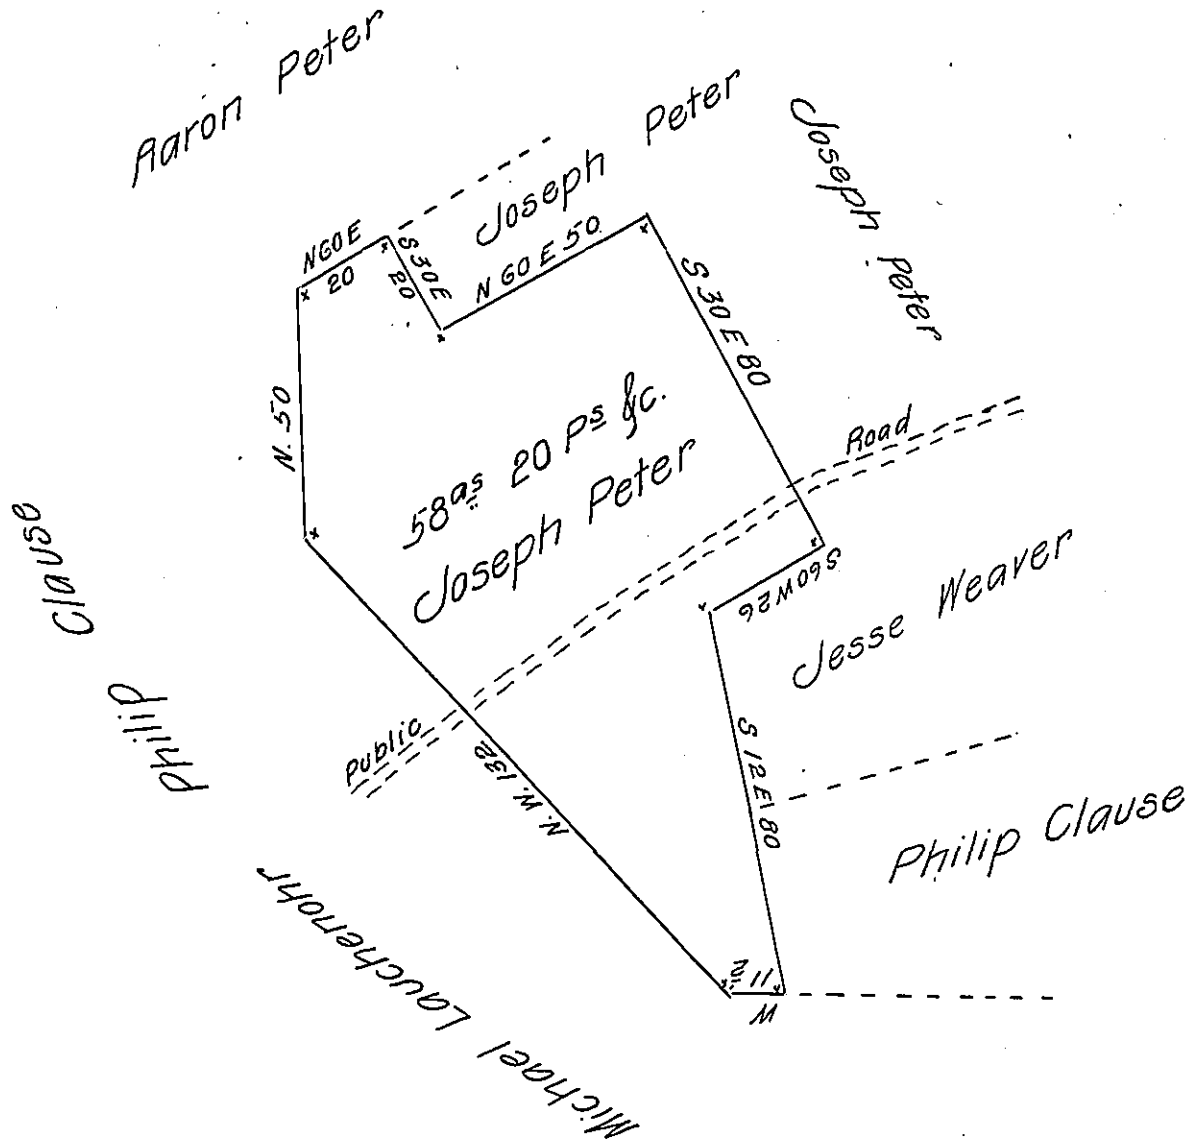 Aaron Peter
Joseph Peter
Joseph Peter
N60E
20
S30E
20
N 60 E 50
S 30 E 80
N. 50
58as 20 Ps &c.
Joseph Peter
Road
S60W26
Jesse Weaver
Philip Clause
Public
N. W. 132
S 12 E 80
Philip Clause
11 2
W
Michael Lauchenohr